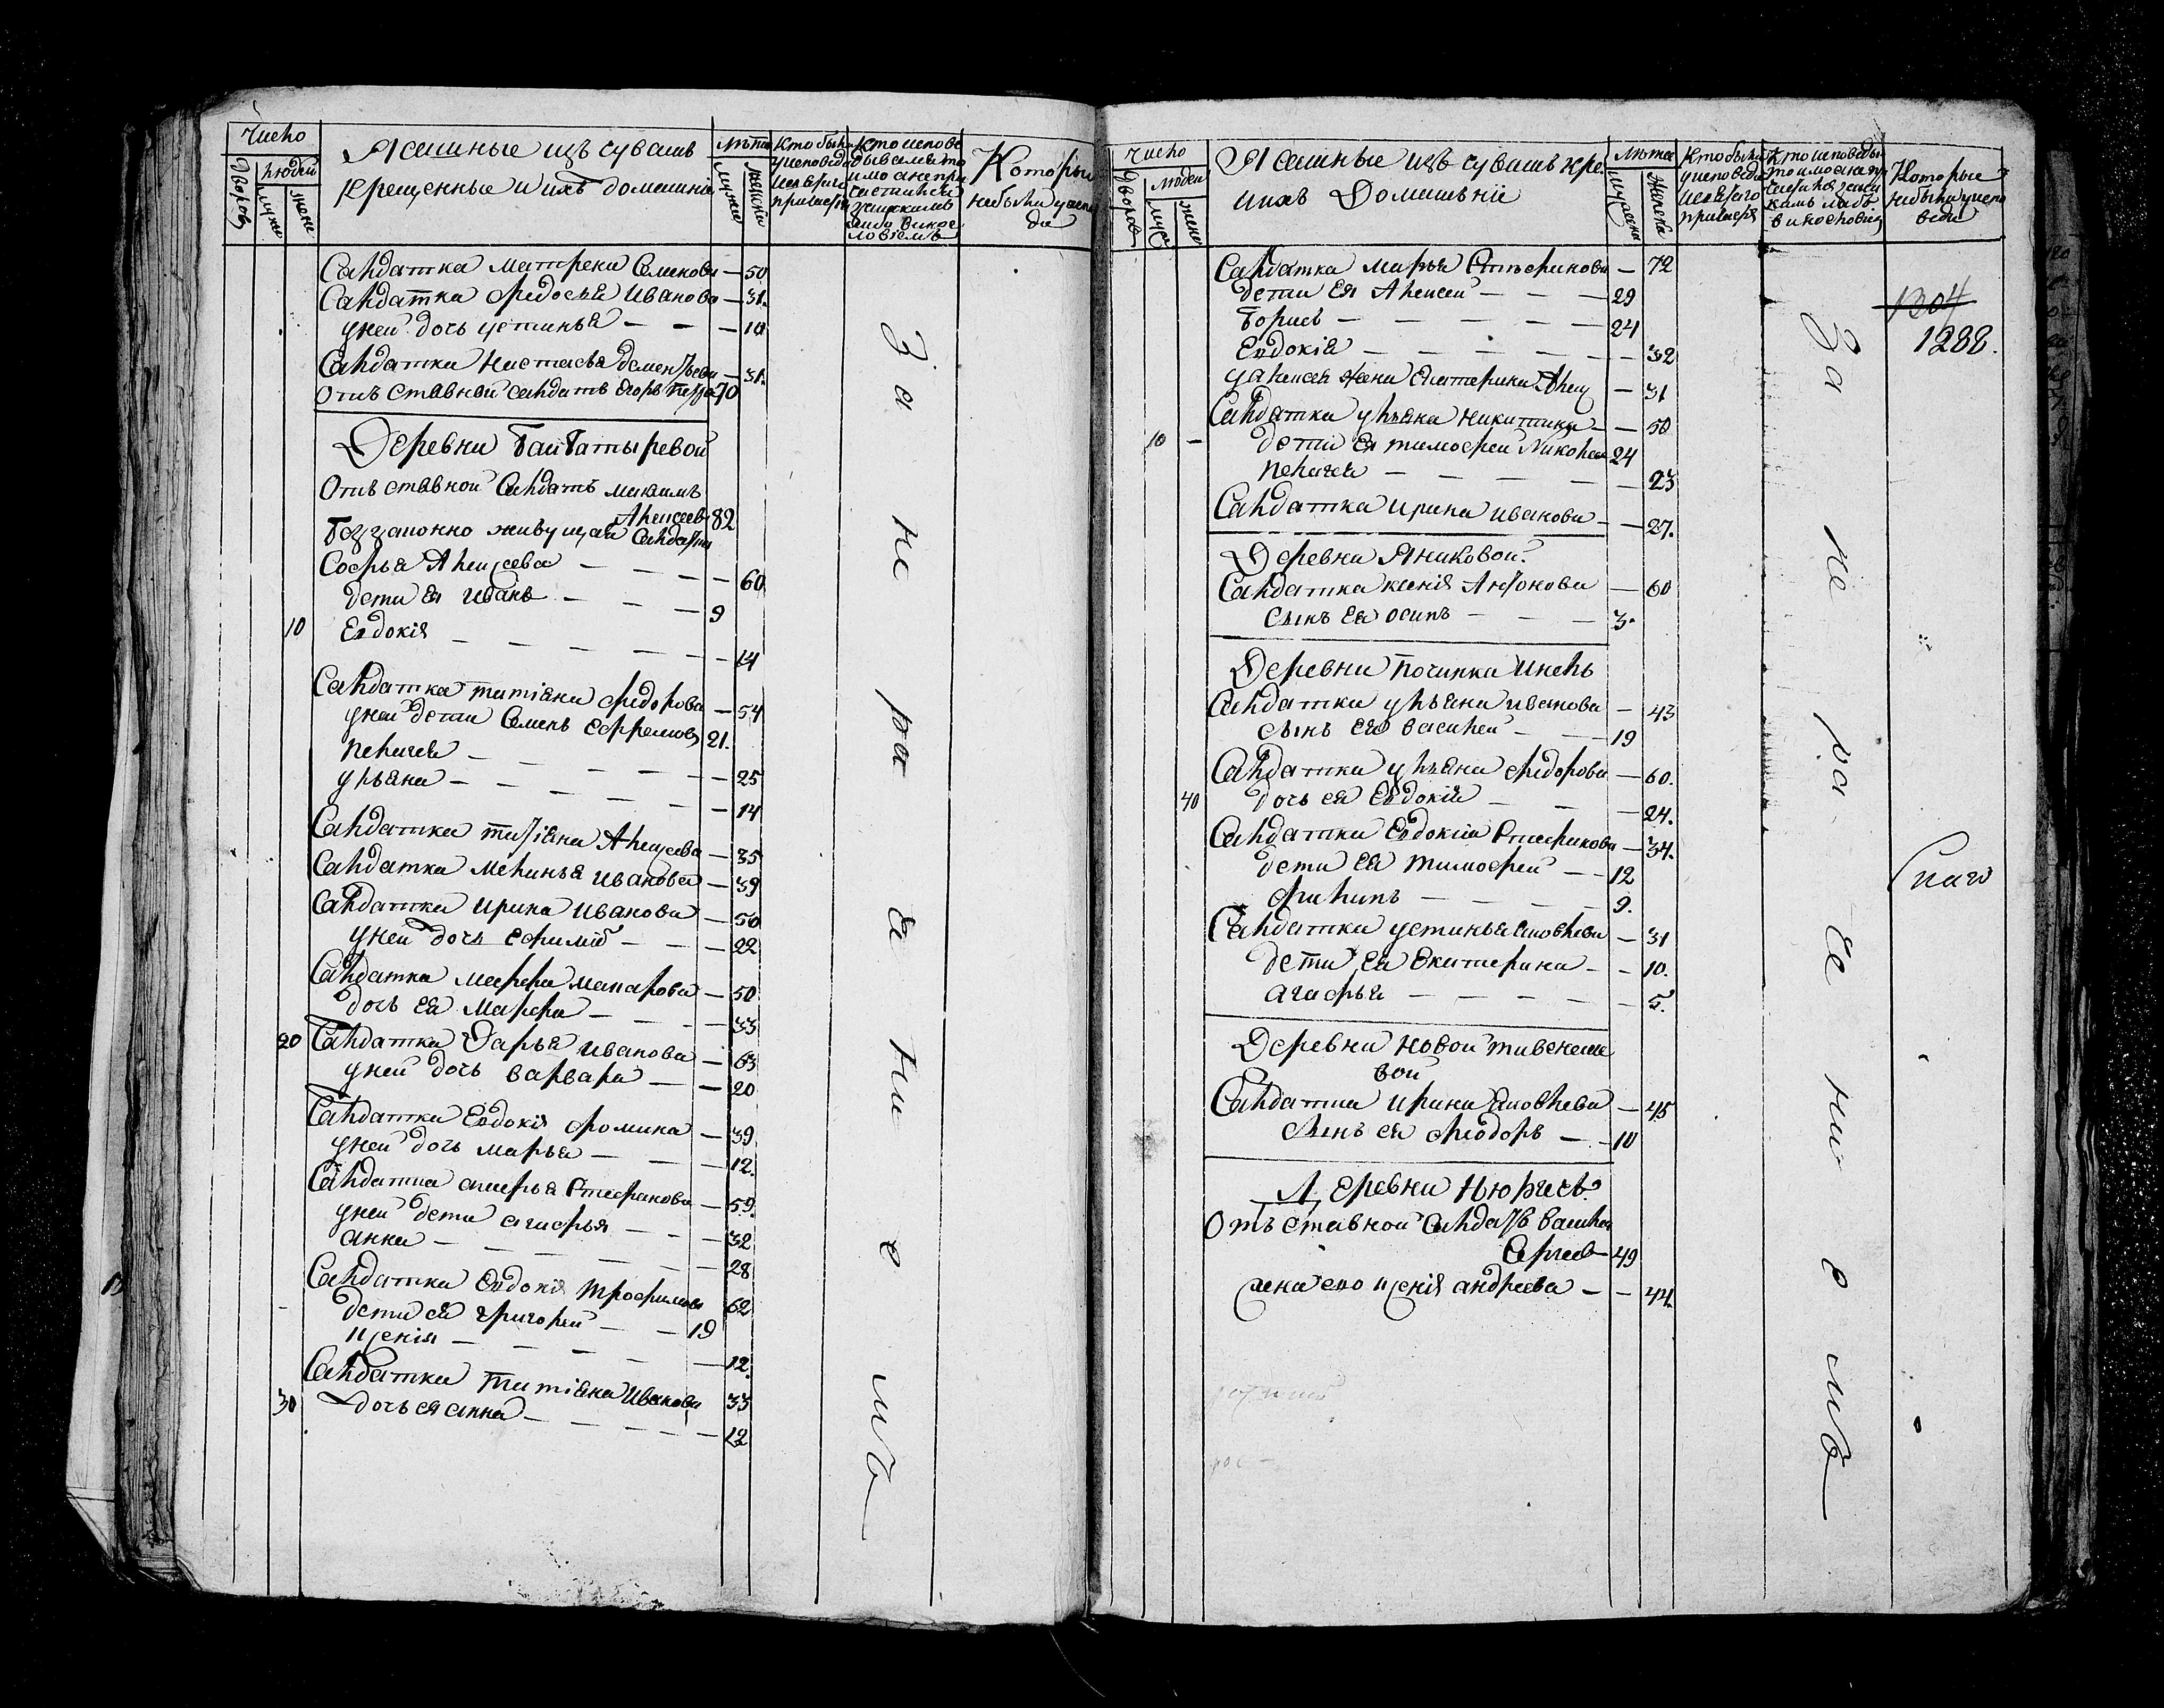 Число
Ясашные изъ чувашъ
крещенные и ихъ домашніи
Дворов
людей
мужи
жене
Лѣта
мужи
женски
Кто были
у исповеди
и св: таго
причастія
Кто испове
дывались то
кмо а не при
частились
Которыи
небыли уиспо
ди
Салдатка матрена Семенова — 50
Салдатка федосья Иванова — 31.
у неи дочь устинья — — — 10
Салдатка настасья деменьтьева — 31.
Отъставной салдатъ Егоръ 70
Деревни Байбатыревой
Отъставной Салдатъ максимъ
Алексеевъ 82
Беззаконно живущая Салдатка
Софья Алексеева — — — 60
дети ея иванъ — — — 9
10 Евдокія — — — — — 14
Салдатка татіяна федорова — 54
у неи дети Семенъ ефремовъ 21.
пелагея — — — — — 25
ульяна — — — — — 14
Салдатка татіяна Алексеева — 35
Салдатка меланья иванова — 39
Салдатка ирина иванова — 50
у неи дочь ефимія — — — 22
Салдатка марфа макарова — 50
дочь ея марфа — — — 33
20 Салдатка Дарья иванова — 63
у неи дочь варвара — — 20
Салдатка Евдокія фомина — 39
у неи дочь марья — — — 12.
Салдатка Стефанова — 59.
у неи дети агафья — — — 32
анна — — — — — 28
Салдатка Евдокія трофимова 62
дети ея григорей — — 19
ксенія — — — — — 12.
Салдатка татіяна Иванова 33
30 дочь ея анна — — — — 12
За не ра де ни е мъ
Число
Ясашные изъ чувашъ кре.
и ихъ Домашьніи
Дворов
людеи
мужи
жене
Лѣта
мужеска
Женска
Кто были
у исповеди
и святаго
причастія
Которые
небыли у испо
веди
Салдатка марья Стефанова — 72
дети ея Алексеи — — — 29
Борисъ — — — — — 24
Евдокія — — — — — 32
у алексея жена екатерина — 31
Салдатка ульяна никитина — — 50
10 — дети ея тимофеи Николаев 24
пелагея — — — — — 23
Салдатка ирина иванова — — 27.
Деревни Яниковои.
Салдатка ксенія Антонова — 60
сынъ ея осипъ — — — 3.
Деревни починка Инель
Салдатка ульяна иванова — 43
сынъ ея василеи — — 19
Салдатка ульяна федорова — 60.
40 дочь ея Евдокія — — — 24.
Салдатка Евдокія Стефанова — 34.
дети ея тимофеи — — 12
филипъ — — — — 9.
Салдатка устинья яковлева — 31
дети ея Екатерина — — 10.
агафья — — — — — 5.
Деревни новои тивенеше
вои
Салдатка ирина яковлева — 45
Сынъ ея феодоръ — — 10
Деревни Нюргечь
Отъставной Салдатъ василеи
Сергеев 49
жена его ксенія андреева — — 44.
За не ра де ни е мъ
1304
1288.